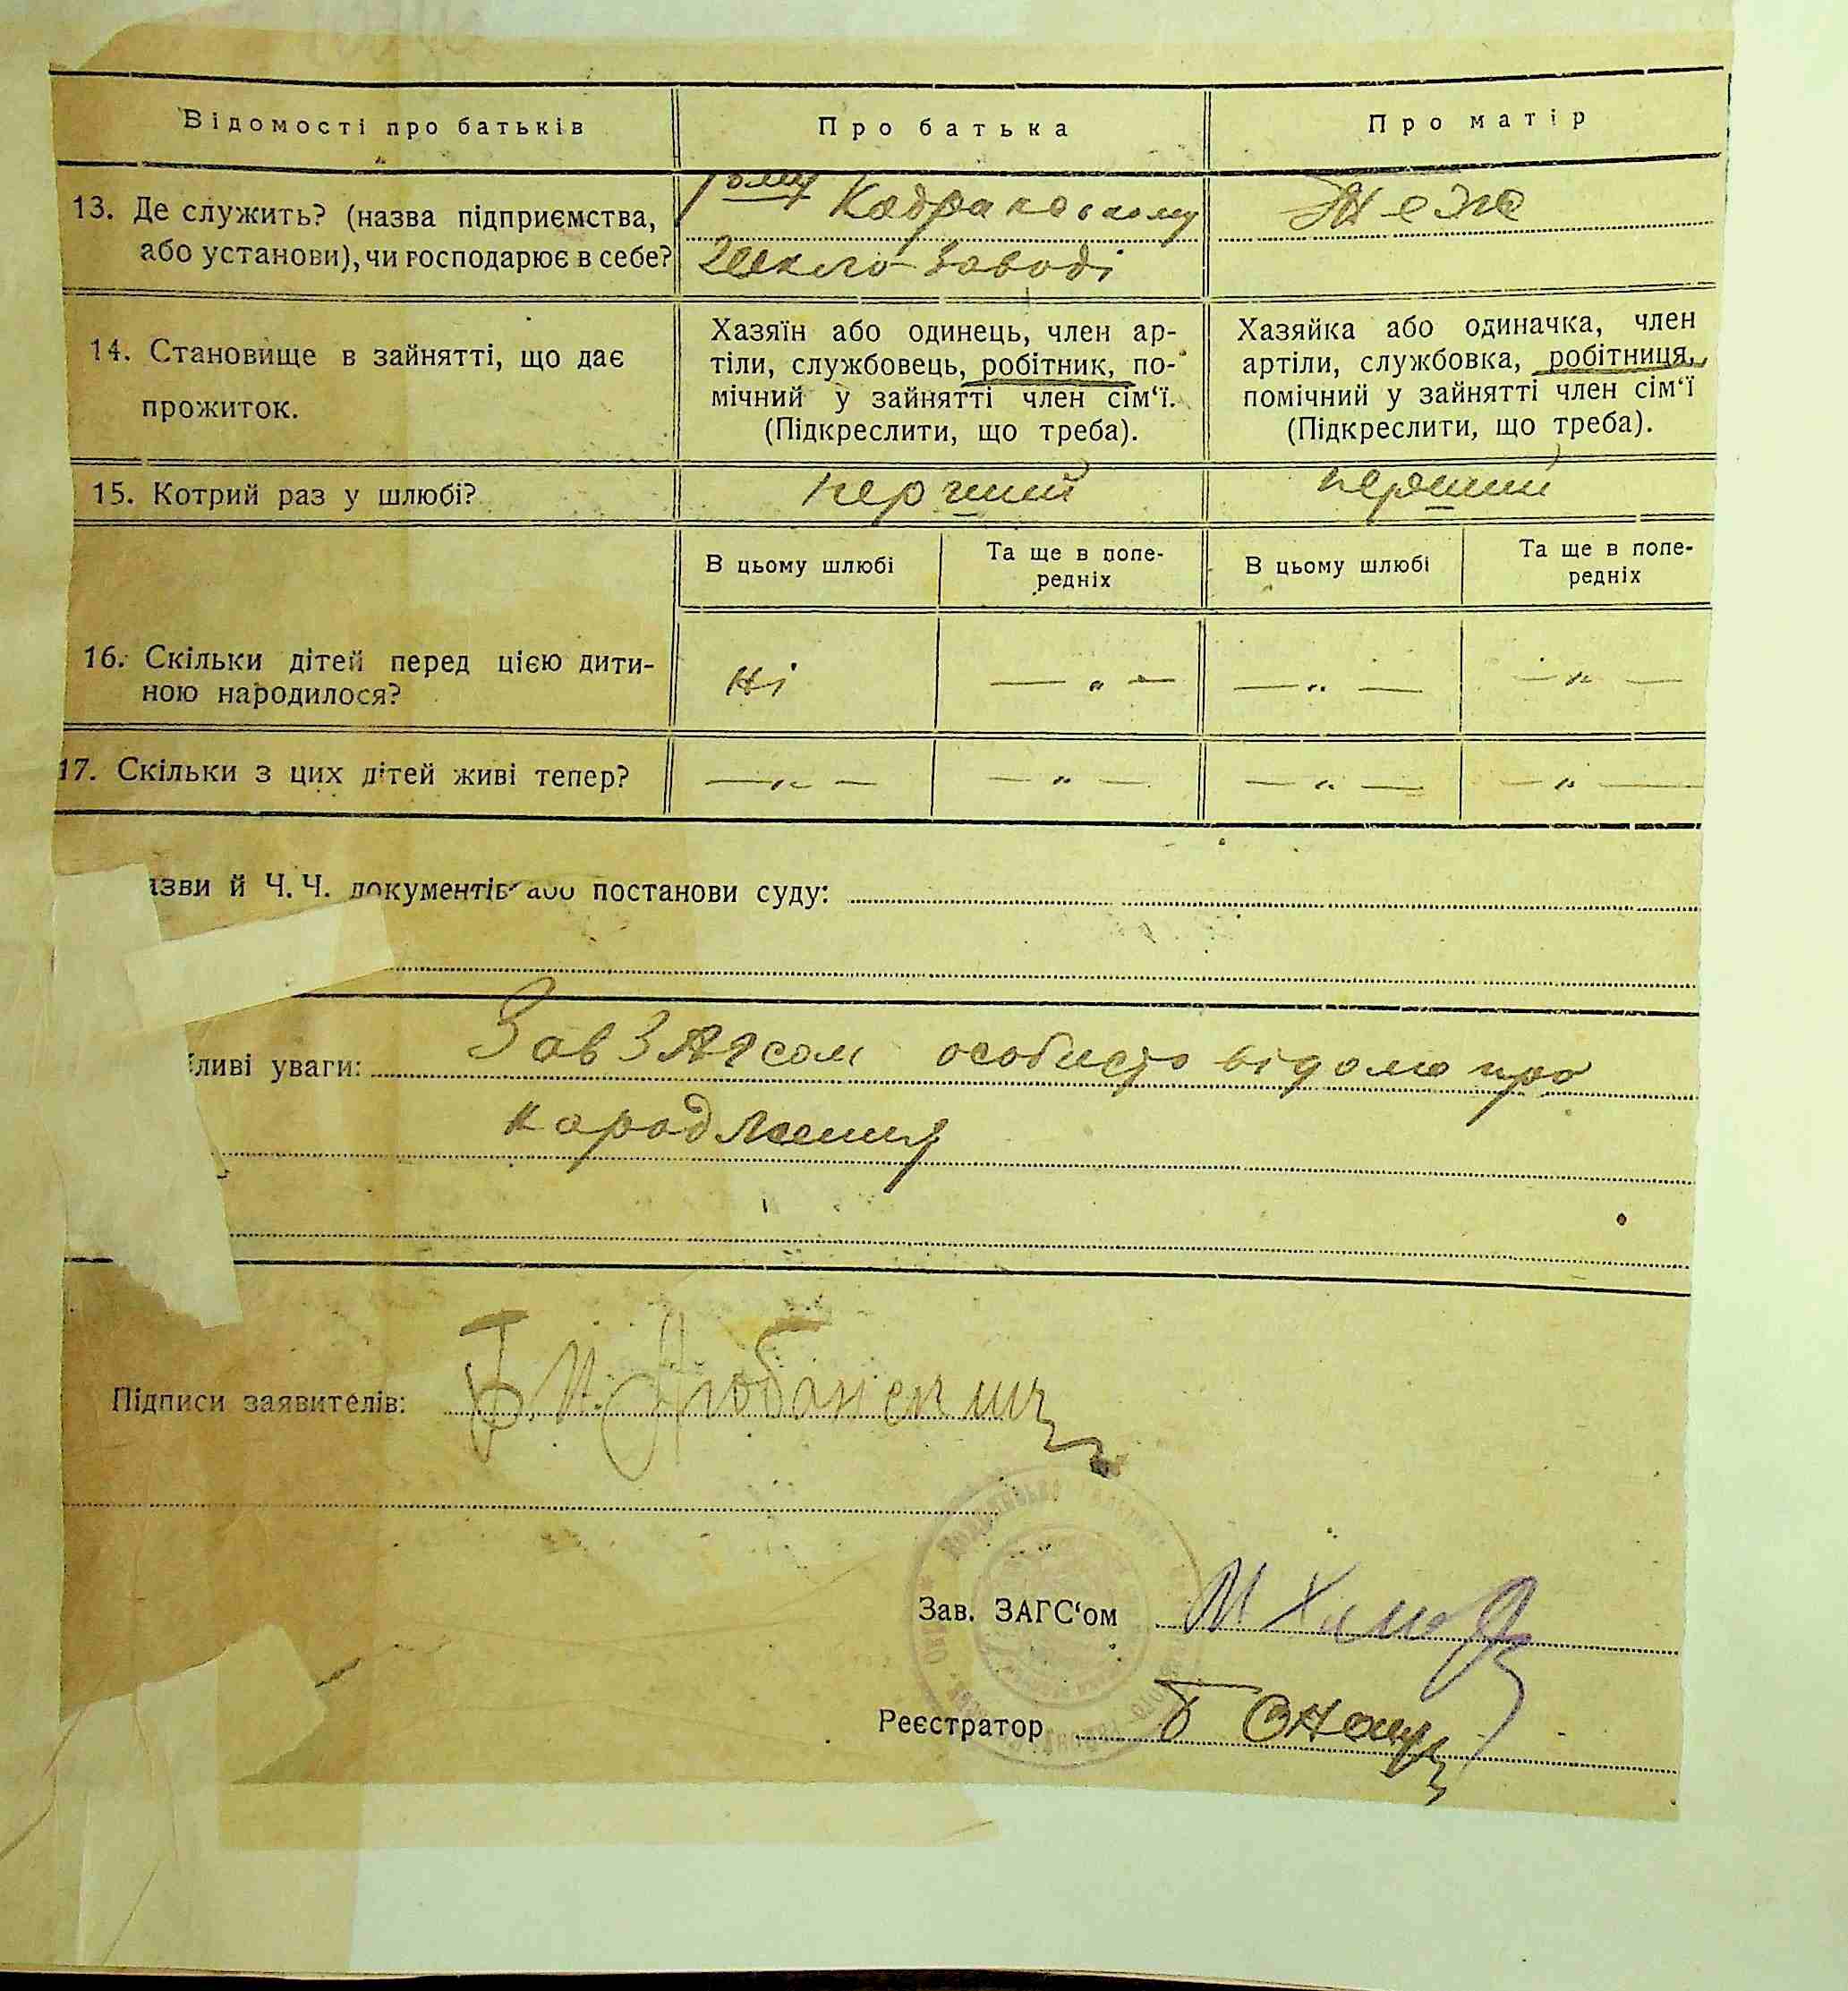 Відомості про батьків
Про батька
Про матір
13. Де служить? (назва підприємства,
або установи), чи господарює в себе?
заводі
Теж
14. Становище в зайнятті, що дає
прожиток.
Хазяїн або одинець, член ар-
тіли, службовець, робітник, по-
мічний у зайнятті член сім‘ї.
(Підкреслити, що треба).
Хазяйка або одиначка, член
артіли, службовка, робітниця,
помічний у зайнятті член сім‘ї
(Підкреслити, що треба).
15. Котрий раз у шлюбі?
перший
перший
В цьому шлюбі
Та ще в попе-
редніх
В цьому шлюбі
Та ще в попе-
редніх
16. Скільки дітей перед цією дити-
ною народилося?
ні
— „ —
— „ —
— „ —
17. Скільки з цих дітей живі тепер?
— „ —
— „ —
— „ —
— „ —
азви й Ч. Ч. документів або постанови суду:
ливі уваги: Зав ЗАГсом особисто відомо про
народження
Підписи заявителів:
Зав. ЗАГС‘ом
Реєстратор